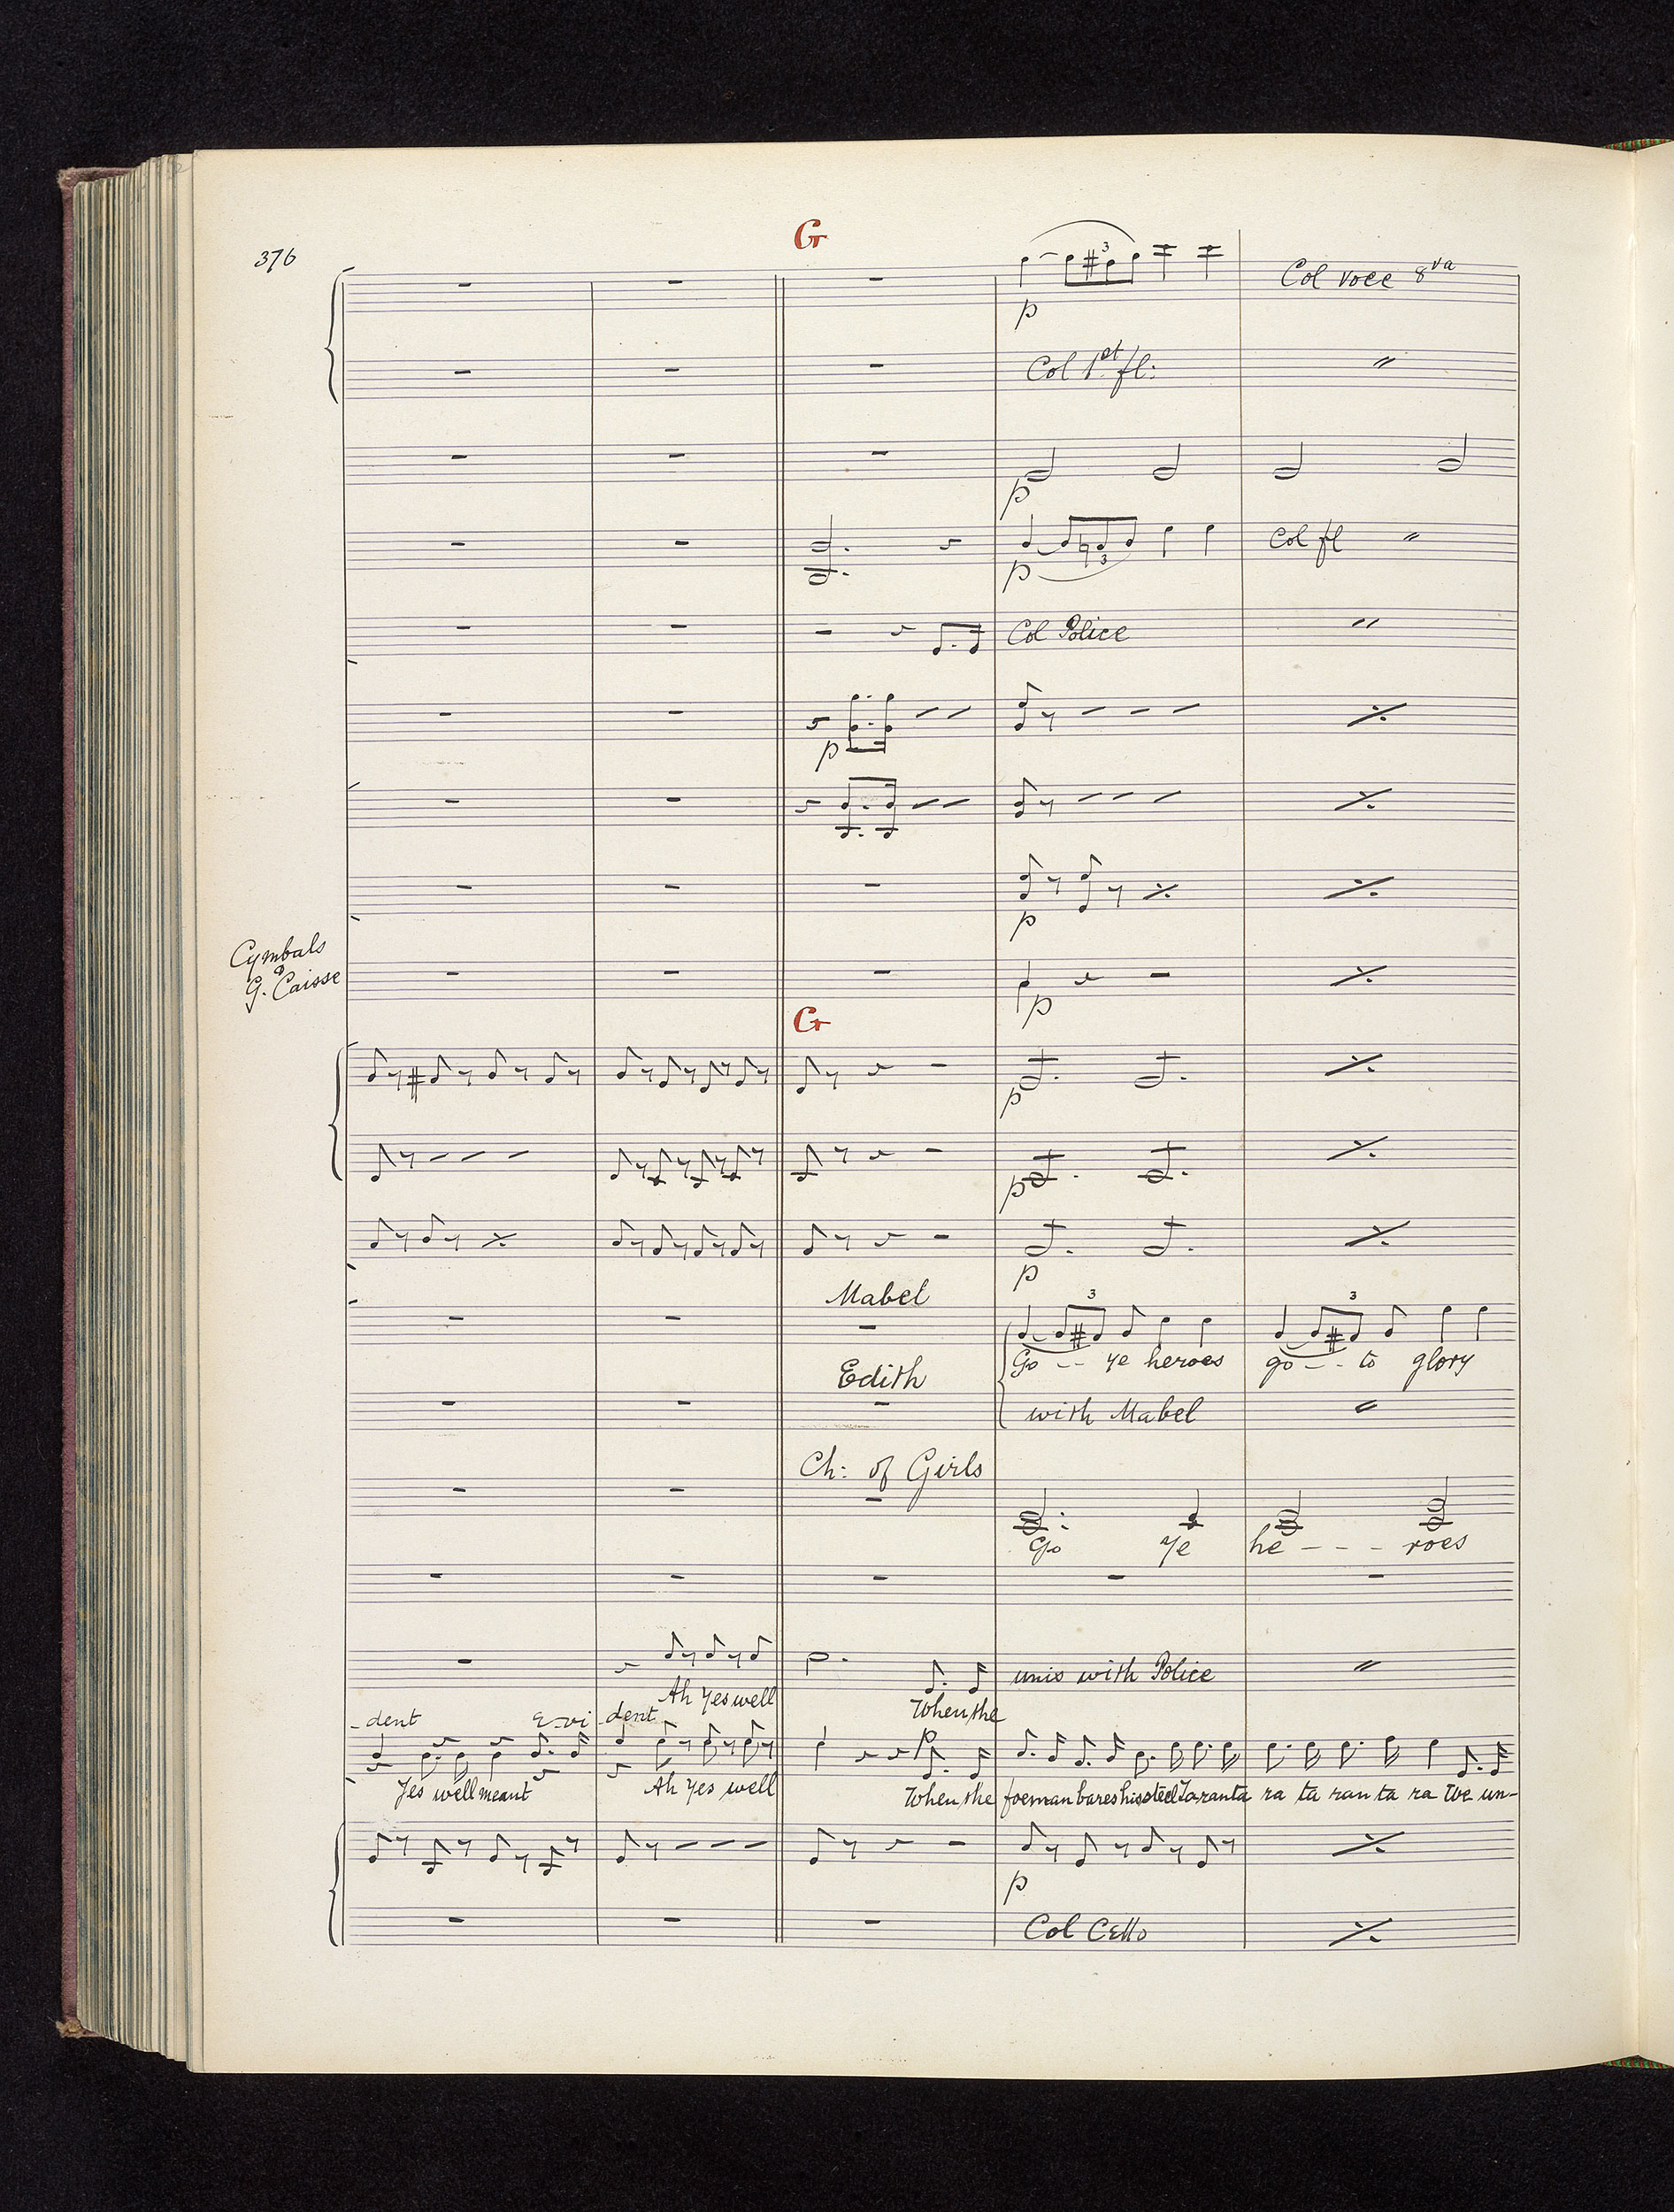 376
G
p
3
Col voce 8va
Col 1st fl:
p
p
3
Col fl
Col Police
p
p
Cymbals
& G. Caisse
p
G
p
p
p
Mabel
3
3
Go -- ye heroes go -- to glory
Edith
with Mabel
Ch: of Girls
Go ye he --- roes
unis with Police
Ah Yes well
When the
- dent E-vi-dent
p
Yes well meant Ah Yes well When the foeman bares his steel Taranta ra ta ran ta ra We un-
p
Col Cello